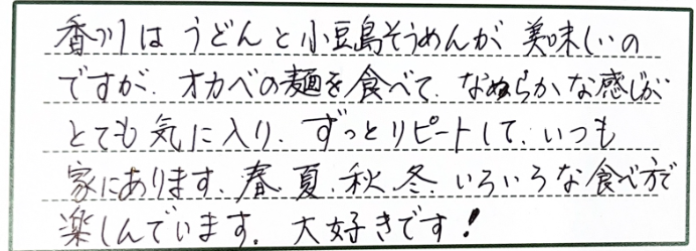 香川はうどんと小豆島そうめんが美味しいの
ですが、オカベの麺を食べて、なめらかな感じが
とても気に入り、ずっとリピートして、いつも
家にあります。春、夏、秋、冬、いろいろな食べ方で
楽しんでいます。大好きです!